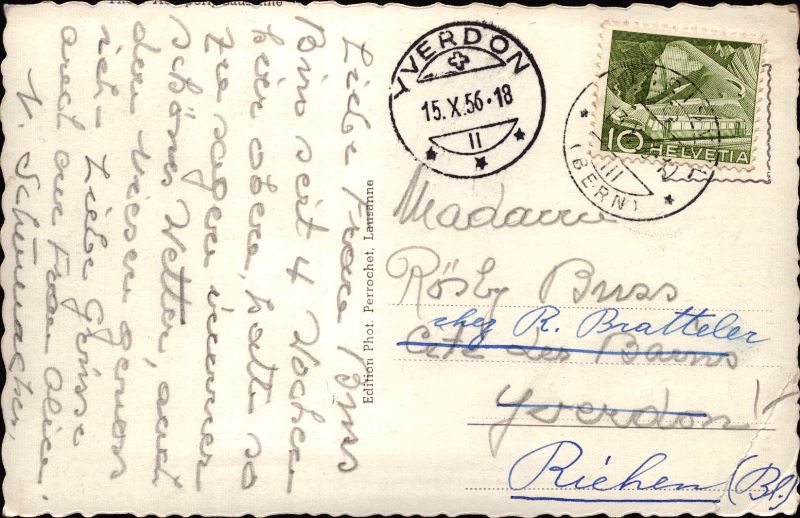 Liebe Frau Buss
Bin seit 4 Wochen
hier oben, hatt so
zu sagen immer
schönes Wetter, auch
den Wiesen genoss
ich- Liebe Grüsse
auch an Frau Alice.
V. Schumacher
Edition Phot. Perrochet, Lausanne
YVERDON
15.X.56-18
II
10 HELVETIA
(BERN)
III
Madame
Rösly Buss
chez R. Bratteler
Cité des Bains
Yverdon
Riehen (Bl.)